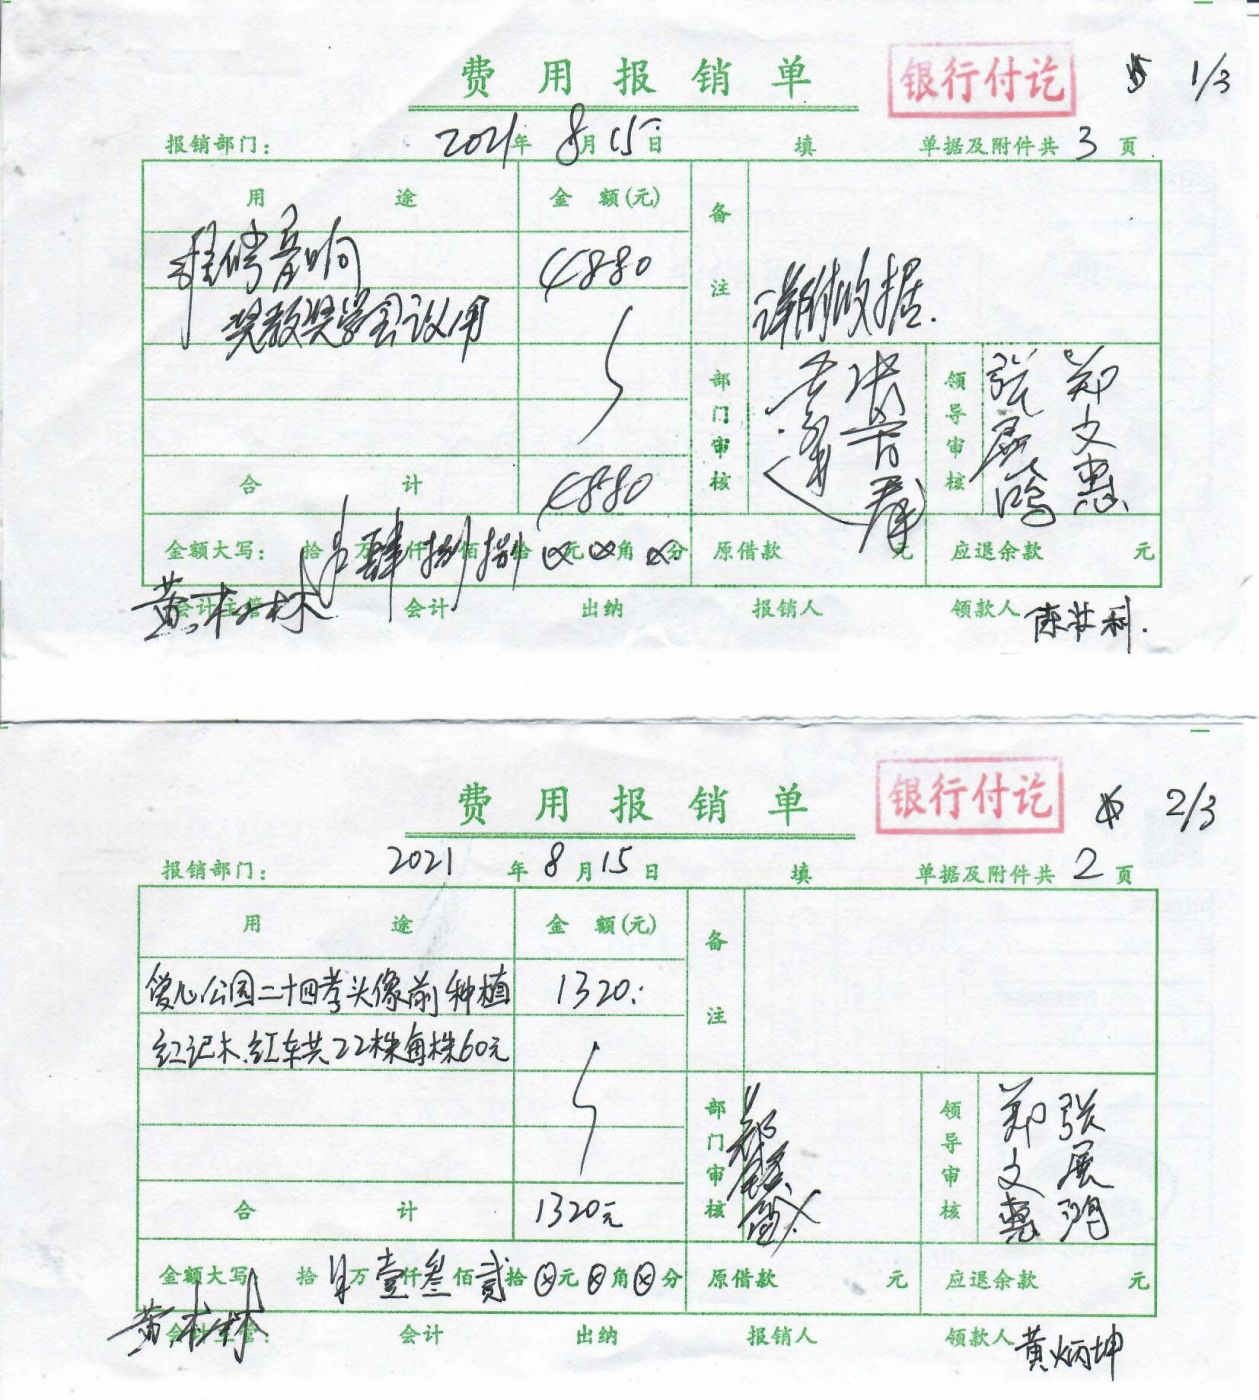 费用报销单 银行付讫 1/3
报销部门： 2021年8月15日 填 单据及附件共3页
用途 金额(元) 备注
音响 4880
奖教奖学会议用 详附收据.
部门审核 领导审核 张展鸿 郑文惠
合计 4880
金额大写： 拾万肆仟捌佰捌拾⊗元⊗角⊗分 原借款 元 应退余款 元
会计主管 黄木林 会计 出纳 报销人 领款人 陈壮利.
费用报销单 银行付讫 2/3
报销部门： 2021年8月15日 填 单据及附件共2页
用途 金额(元) 备注
爱心公园二十四孝头像前种植 1320.
红记木.红车共22株每株60元
部门审核 领导审核 郑文惠 张展鸿
合计 1320元
金额大写 拾万壹仟叁佰贰拾⊗元⊗角⊗分 原借款 元 应退余款 元
会计主管： 黄木林 会计 出纳 报销人 领款人 黄炳坤